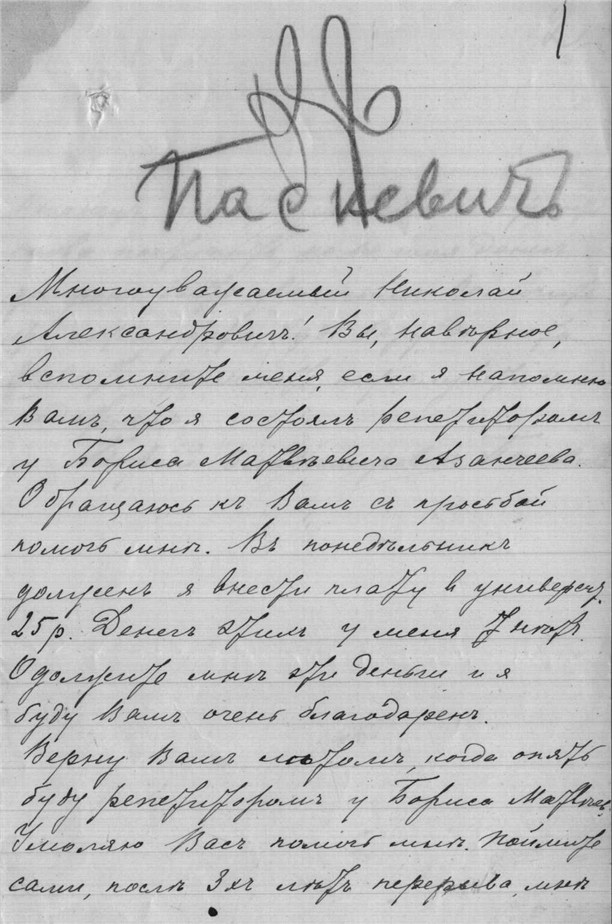 1
Паскевичъ
Многоуважаемый Николай
Александровичъ! Вы, навѣрное,
вспомните меня, если я напомню
Вамъ, что я состоялъ репетиторомъ
у Бориса Матвѣевича Азанчеева.
Обращаюсь къ Вамъ съ просьбой
помочь мнѣ. Въ понедѣльникъ
долженъ я внести плату в универси.
25 р. Денегъ этихъ у меня нѣтъ.
Одолжите мнѣ эти деньги и я
буду Вамъ очень благодаренъ.
Верну Вамъ лѣтомъ, когда опять
буду репетиторомъ у Бориса Матвѣев.
Умоляю Васъ помочь мнѣ. Поймите
сами, послѣ 3хъ лѣтъ перерыва, мнѣ